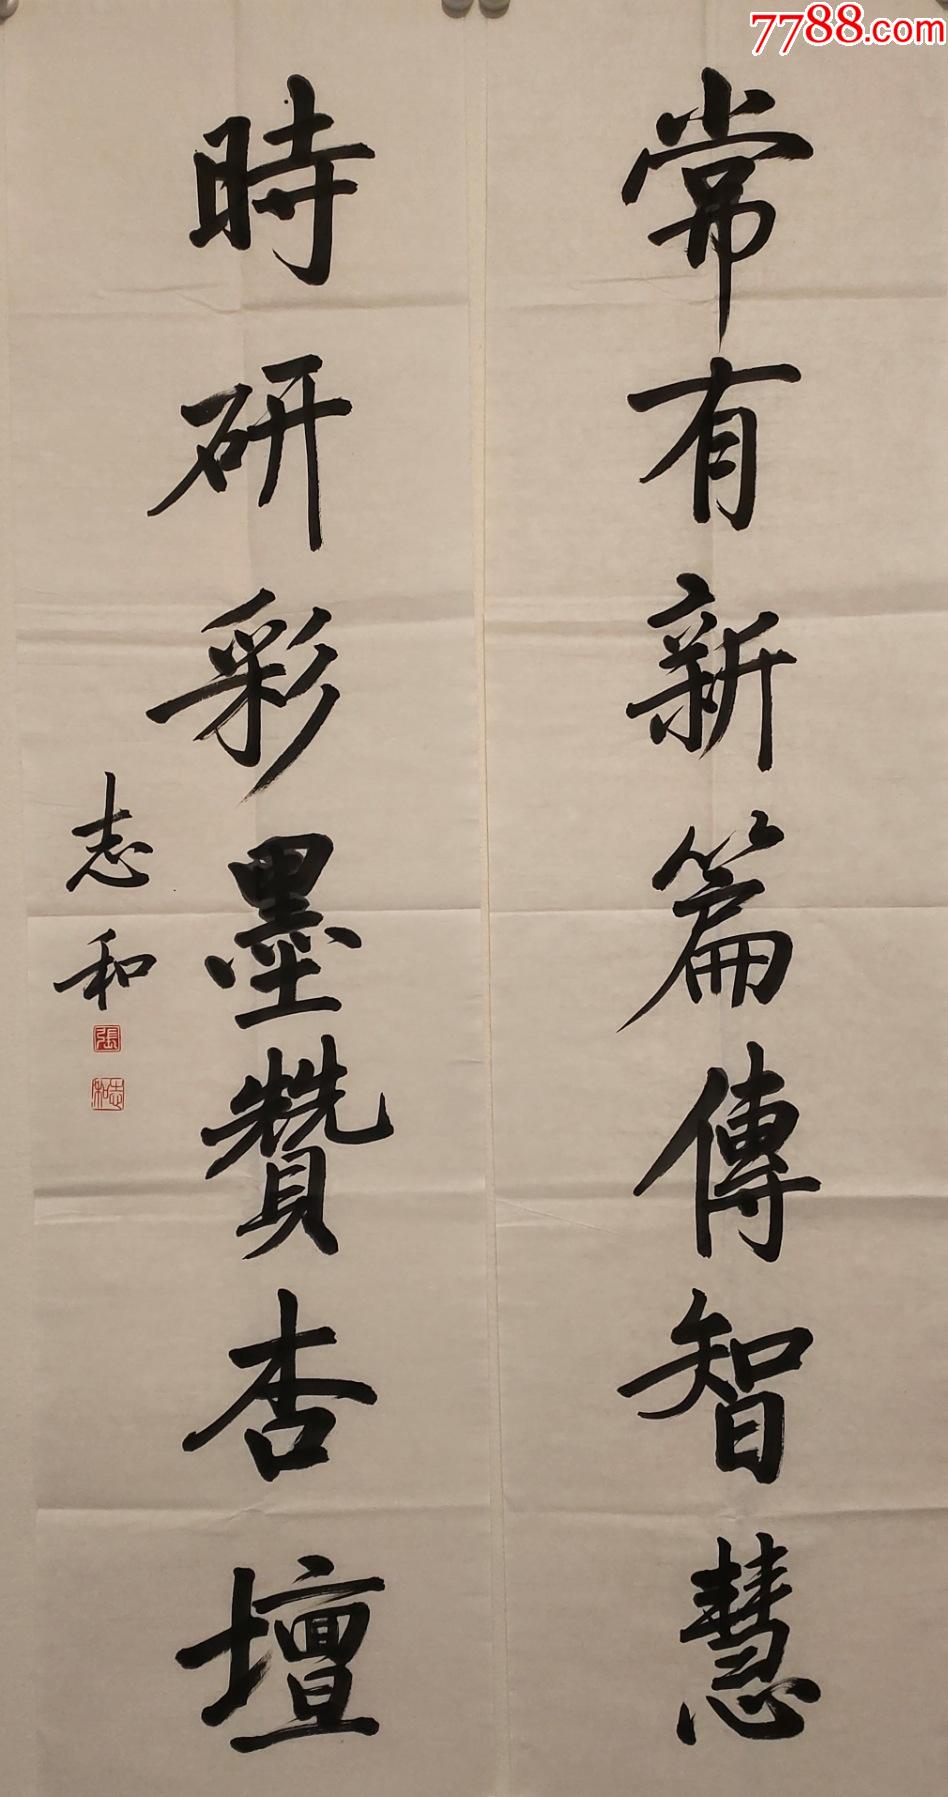 7788.com
常有新篇傳智慧
時研彩墨贊杏壇
志和
張
志和